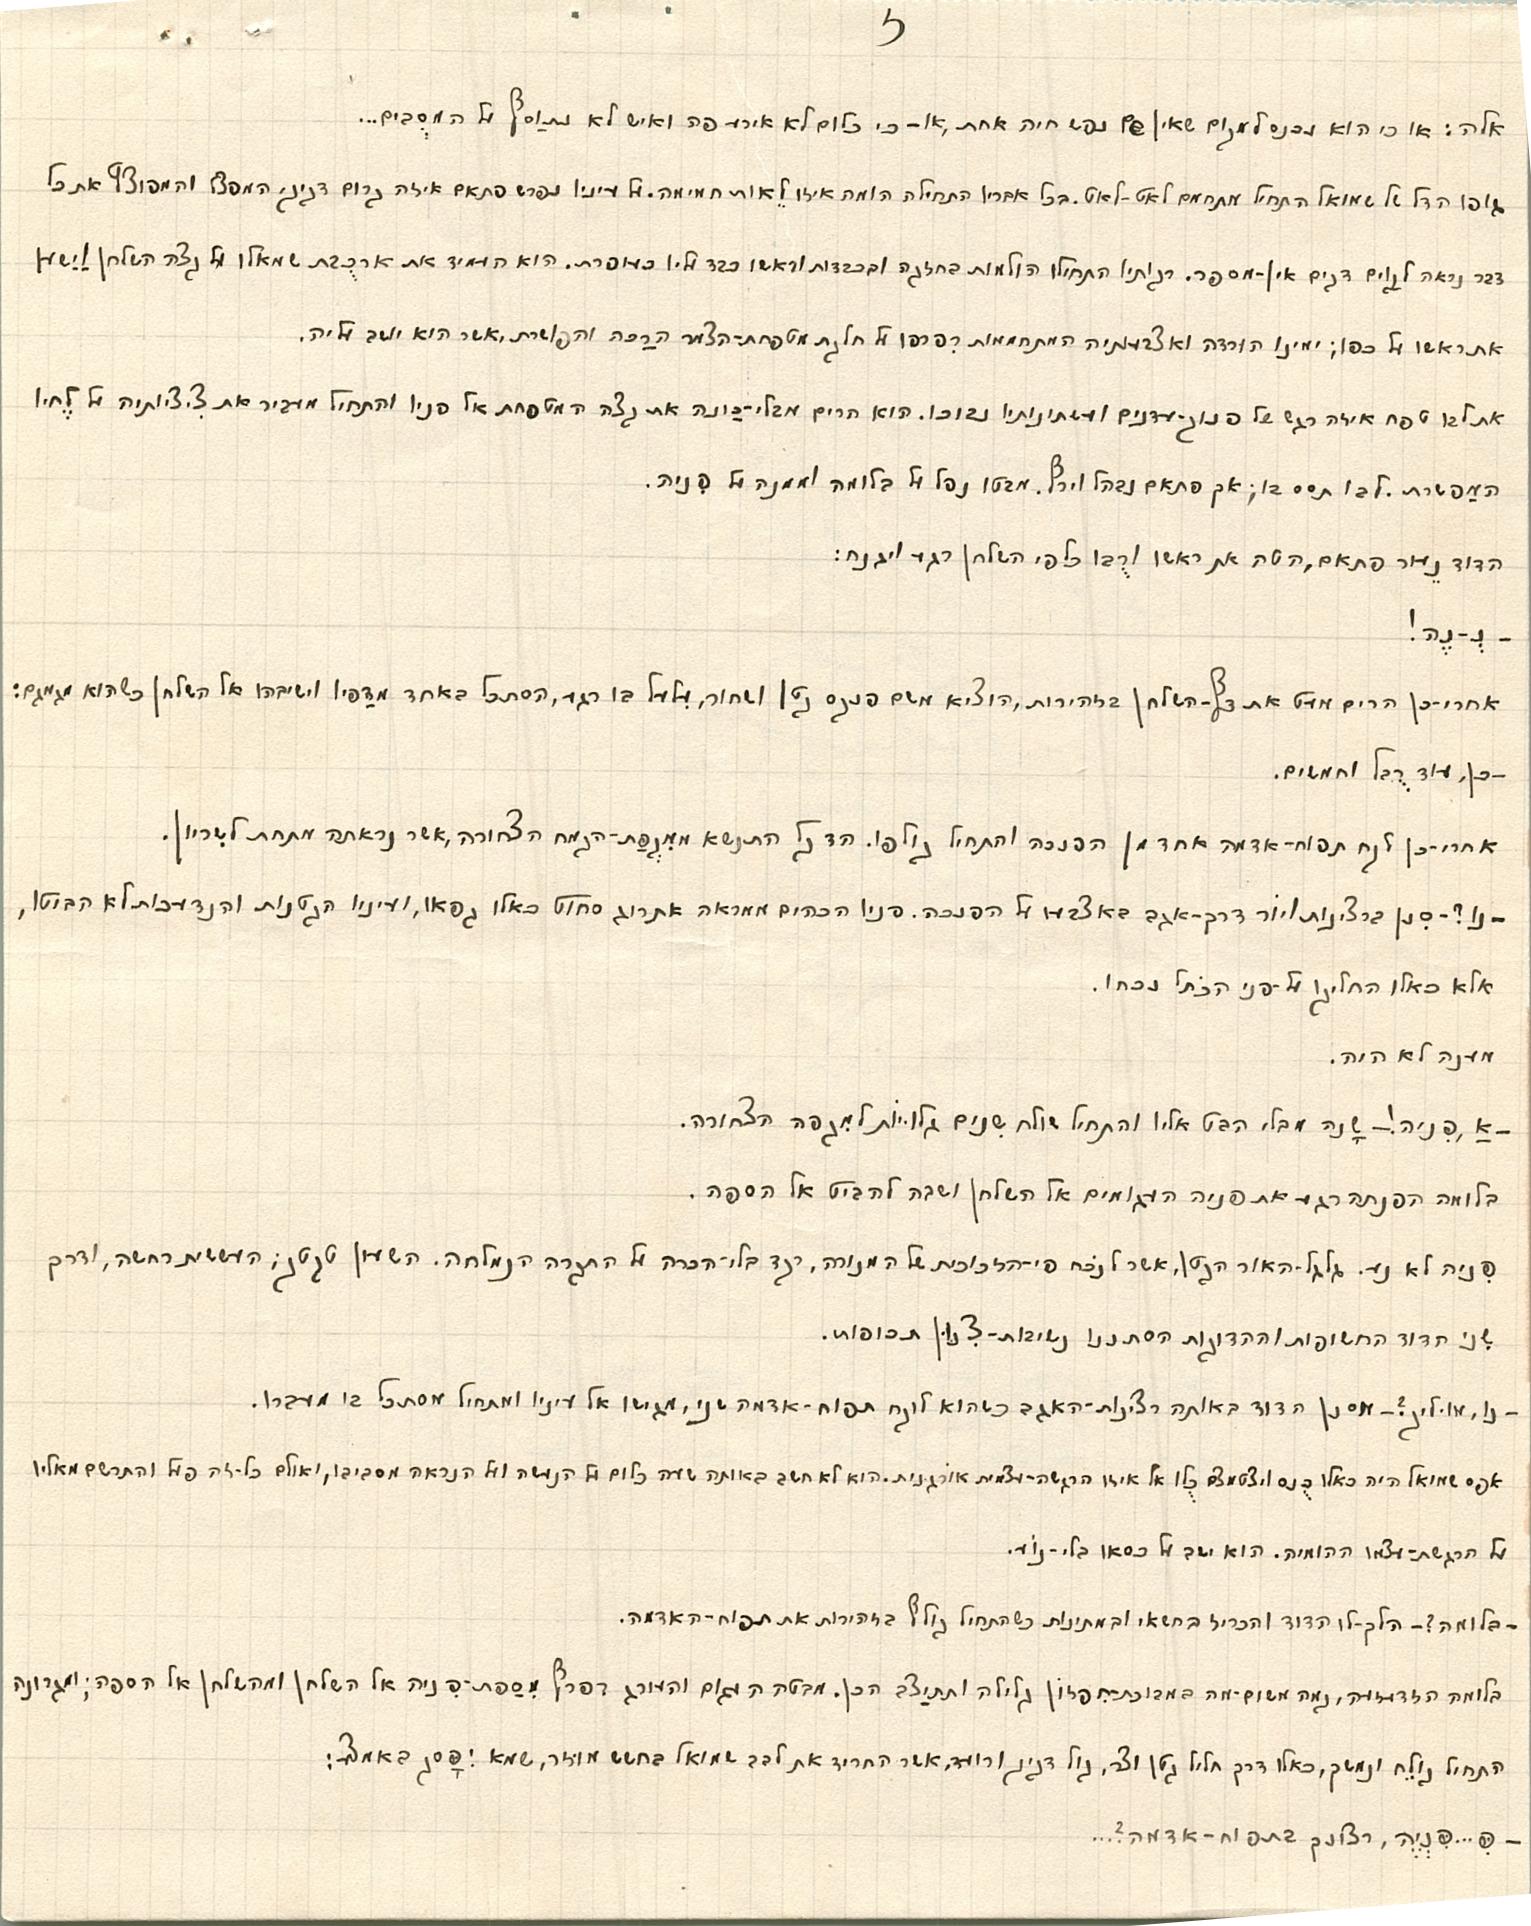 5
אלה: או כי הוא נכנס למקום שאין שם נפש חיה אחת, או – כי כלום לא אירע פה ואיש לא נתוַסף על המסֻבים...
גופו הדל של שמואל התחיל מתחמם לאט-לאט. בכל אבריו התחילה הומה איזו לֵאות חמימה. על עיניו נפרש פתאם איזה קרום דקיק, המפצל והמפוצץ את כל
דבר נראה לקַוים דקים אין-מספר. רקותיו התחילו הולמות בחזקה ובכבדות וראשו כבד עליו כעופרת. הוא העמיד את ארכֻבת שמאלו על קצה השלחן וַיַשען
את ראשו על כפו; ימינו הורדה ואצבעותיה המתחממות רִפרפו על חלקת מטפחת-הצמר הרַכה והפושרת, אשר הוא יושב עליה.
את לבו טפח איזה רגש של פנוק-עדנים ועשתונותיו נבוכו. הוא הרים מבלי-כַוָנה את קצה המטפחת אל פניו והתחיל מעביר את צִיציותיה על לֶחיו
המַפשרת. לבו תסס בו; אך פתאם נבהל וירף. מבטו נפל על בלומה וממנה על פִניה.
הדוד נֵעור פתאם, הטה את ראשו ורֻבו כלפי השלחן רגע ויגנח:
– נְ-נֶה!
אחרי-כן הרים מעט את דף-השלחן בזהירות, הוציא משם פנקס קטן ושחור, עִלעל בו רגע, הסתכל באחד מדַפיו וישיבהו אל השלחן כשהוא מגמגם:
– כן, עוד רֻבל וחמשים.
אחרי-כן לקח תפוח-אדמה אחד מן הפנכה והתחיל קולפו. הד קל התנשא ממִגְפַת-הקמח הצחורה, אשר נראתה מתחת לשִריון.
– נוּ? – סִנן ברצינות ויוֹר דרך-אגב באצבעו על הפנכה. פניו הכהים ממראה אתרוג סחוט כאלו קפאו, ועיניו הקטנות והנדעכות לא הביטו,
אלא כאלו החליקו על-פני הכֹתל נכחו.
מענה לא היה.
– אַ, פִניה! – שָנה מבלי הבט אליו והתחיל שולח שִנים גלויות למִגפה הצחורה.
בלומה הפנתה רגע את פניה העגומים אל השלחן ושבה להביט אל הספה.
פִניה לא נע. גלגל-האור הקטן, אשר לנֹכח פי-הזכוכית של המנורה, רקד בלי-הכרה על התקרה הנמלחה. השעון טקטק; העששית רחשה, ודרך
שִני הדוד החשופות וההדוקות הסתננו נשיבות-צִנון תכופות.
– נו, מוליק? – מסנן הדוד באותה רצינות-האגב כשהוא לוקח תפוח-אדמה שני, מגישו אל עיניו ומתחיל מסתכל בו מעברו.
אפס שמואל היה כאלו כֻנס ויצטמצם כֻלו אל איזו הרגשה-עצמית אורגנית. הוא לא חשב באותה שעה כלום על הנעשה ועל הנראה מסביבו, ואולם כל-זה פעל והתרשם מאליו
על הרגשת-עצמו ההומיה. הוא ישב על כסאו בלי-נוֹע.
– בלומה? – הלך-לו הדוד והכריז בחשאי ובמתינות כשהתחיל קולף בזהירות את תפוח-האדמה.
בלומה הזדעזעה, קמה משום-מה במבוכת-חִפזון קלילה ותתיַצב הכן. מבטה העגום והעורג רפרף מִסַפת-פִניה אל השלחן ומהשלחן אל הספה; ומגרונה
התחיל קולֵח ונמשך, כאלו דרך חליל קטן וצר, קול דקיק ורועד, אשר החריד את לבב שמואל בחשש מוזר, שמא יִפָסק באמצע:
– פִ...פִנְיֶה, רצונך בתפוח-אדמה?...